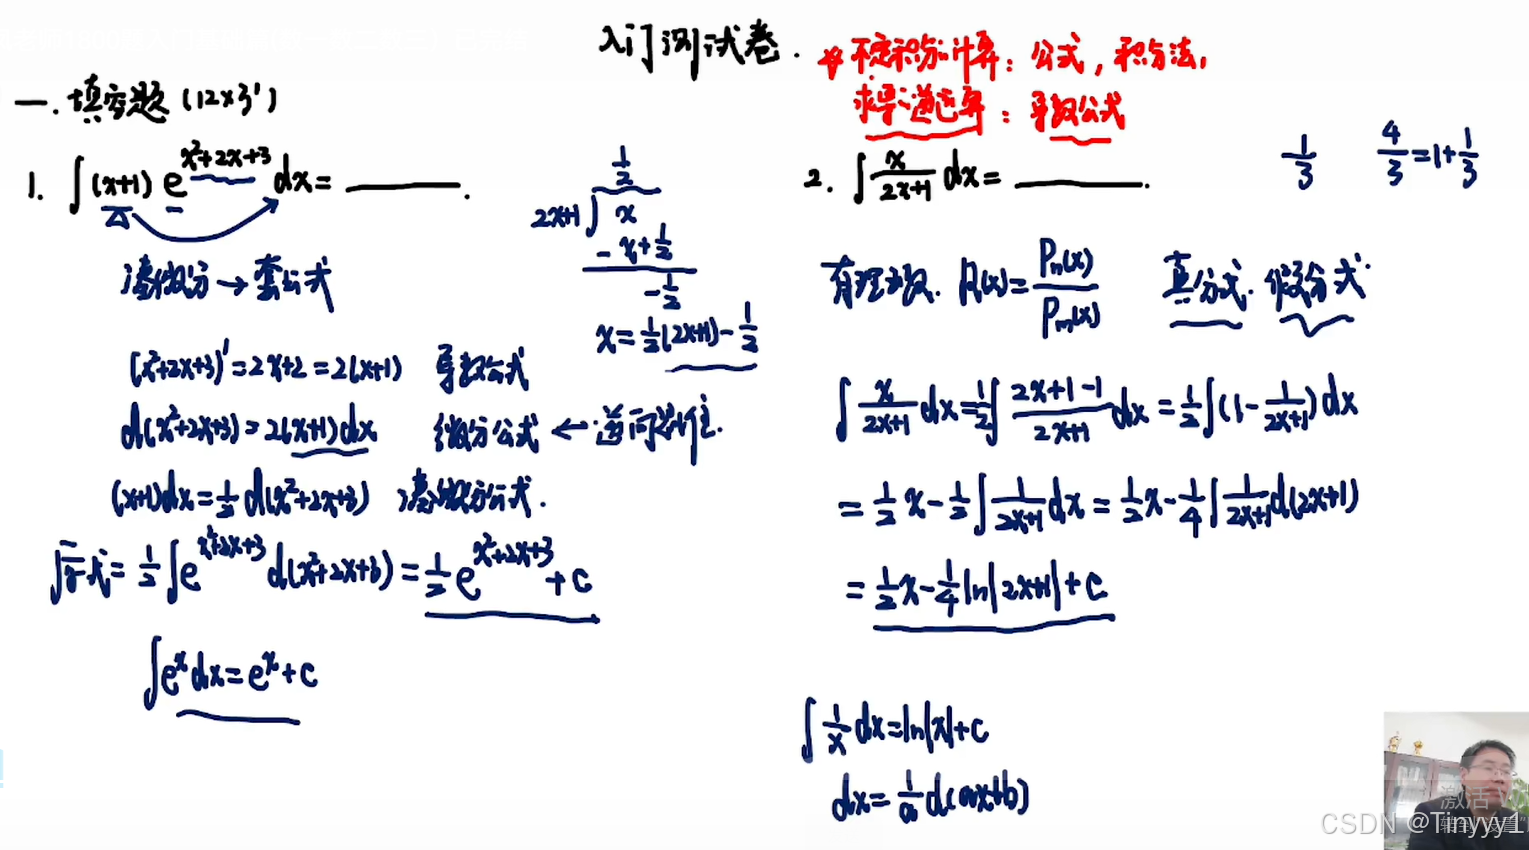 入门测试卷.
* 不定积分计算: 公式, 积分法,
求导逆运算: 导数公式
一. 填空题 (12×3')
1. ∫(x+1) e^{x²+2x+3} dx = ______.
凑微分 → 套公式
(x²+2x+3)' = 2x+2 = 2(x+1) 导数公式
d(x²+2x+3) = 2(x+1)dx 微分公式 ← 逆向思维.
(x+1)dx = 1/2 d(x²+2x+3) 凑微分公式.
原式 = 1/2 ∫e^{x²+2x+3} d(x²+2x+3) = 1/2 e^{x²+2x+3} + c
∫e^x dx = e^x + c
1/2
2x+1 ) x
- x + 1/2
- 1/2
x = 1/2(2x+1) - 1/2
2. ∫ x/(2x+1) dx = ______.
1/3 4/3 = 1 + 1/3
有理函数. R(x) = Pn(x)/Pm(x) 真分式. 假分式.
∫ x/(2x+1) dx = 1/2 ∫ (2x+1-1)/(2x+1) dx = 1/2 ∫(1 - 1/(2x+1)) dx
= 1/2 x - 1/2 ∫ 1/(2x+1) dx = 1/2 x - 1/4 ∫ 1/(2x+1) d(2x+1)
= 1/2 x - 1/4 ln|2x+1| + c
∫ 1/x dx = ln|x| + c
dx = 1/a d(ax+b)
激活
CSDN @Tinyyy1